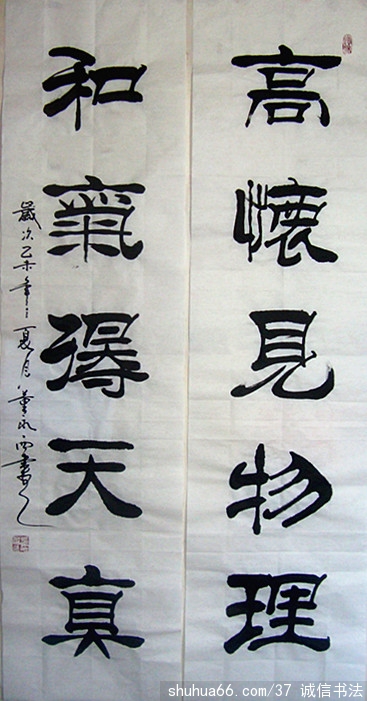 高懷見物理
和氣得天真
歲次乙未年夏月董永西書
shuhua66.com/37 诚信书法